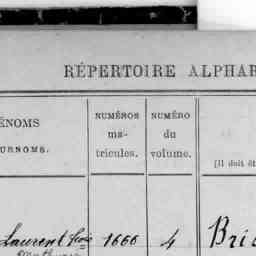 RÉPERTOIRE ALPHAB
ÉNOMS
URNOMS.
NUMÉROS
ma-
tricules.
NUMÉRO
du
volume.
[Il doit êt
Laurent fcois 1666 4 Bri
Mathurin